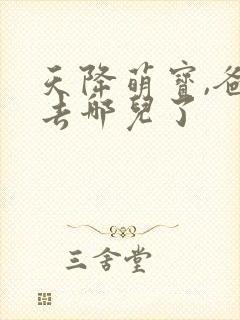 天降萌寶,爸
去哪兒了
三舍堂